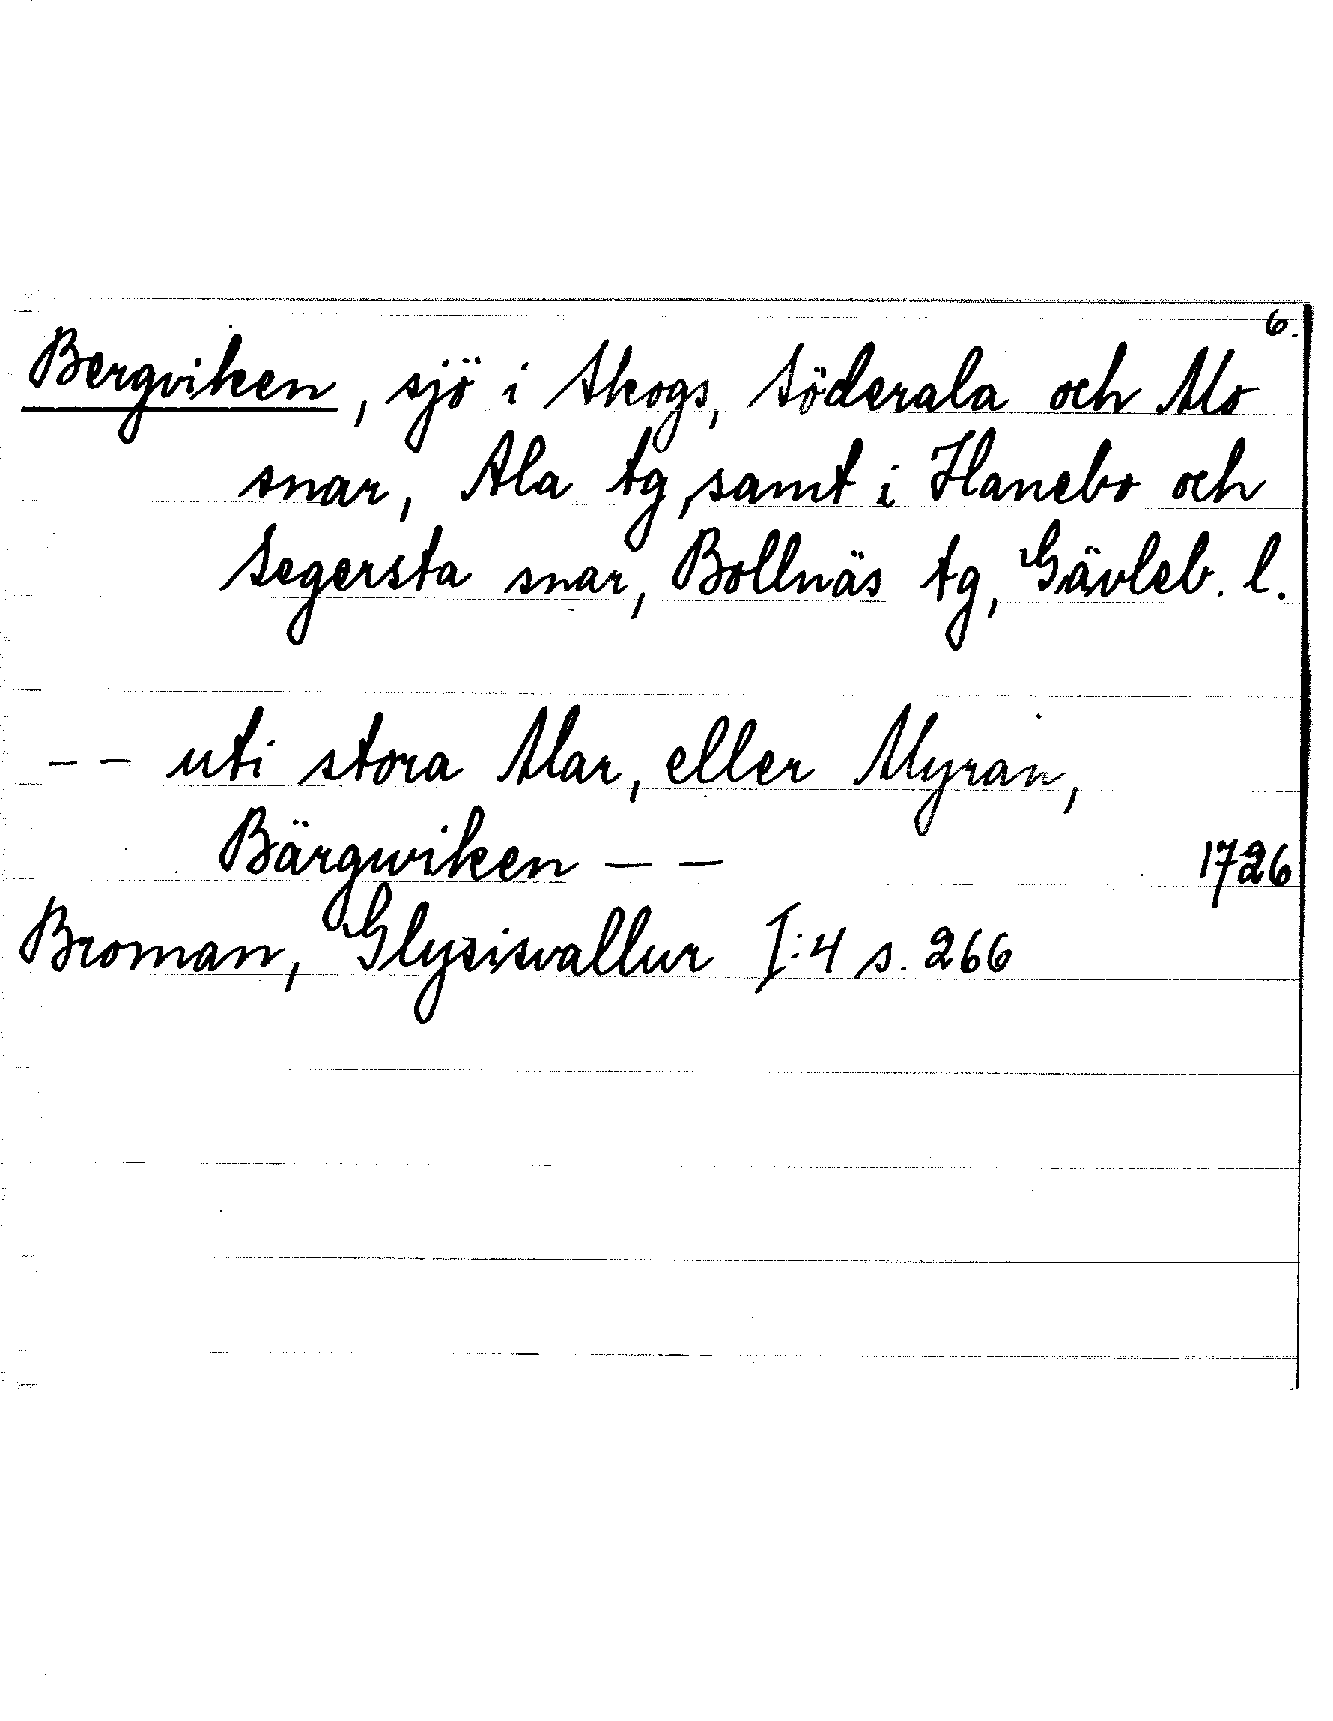 6.
Bergviken, sjö i Skogs, Söderala och Mo
snar, Ala tg, samt i Hanebo och
Segersta snar, Bollnäs tg, Gävleb. l.
-- uti stora Mar, eller Myran,
Bärgwiken --
1726
Broman, Glysisvallur I:4 s. 266